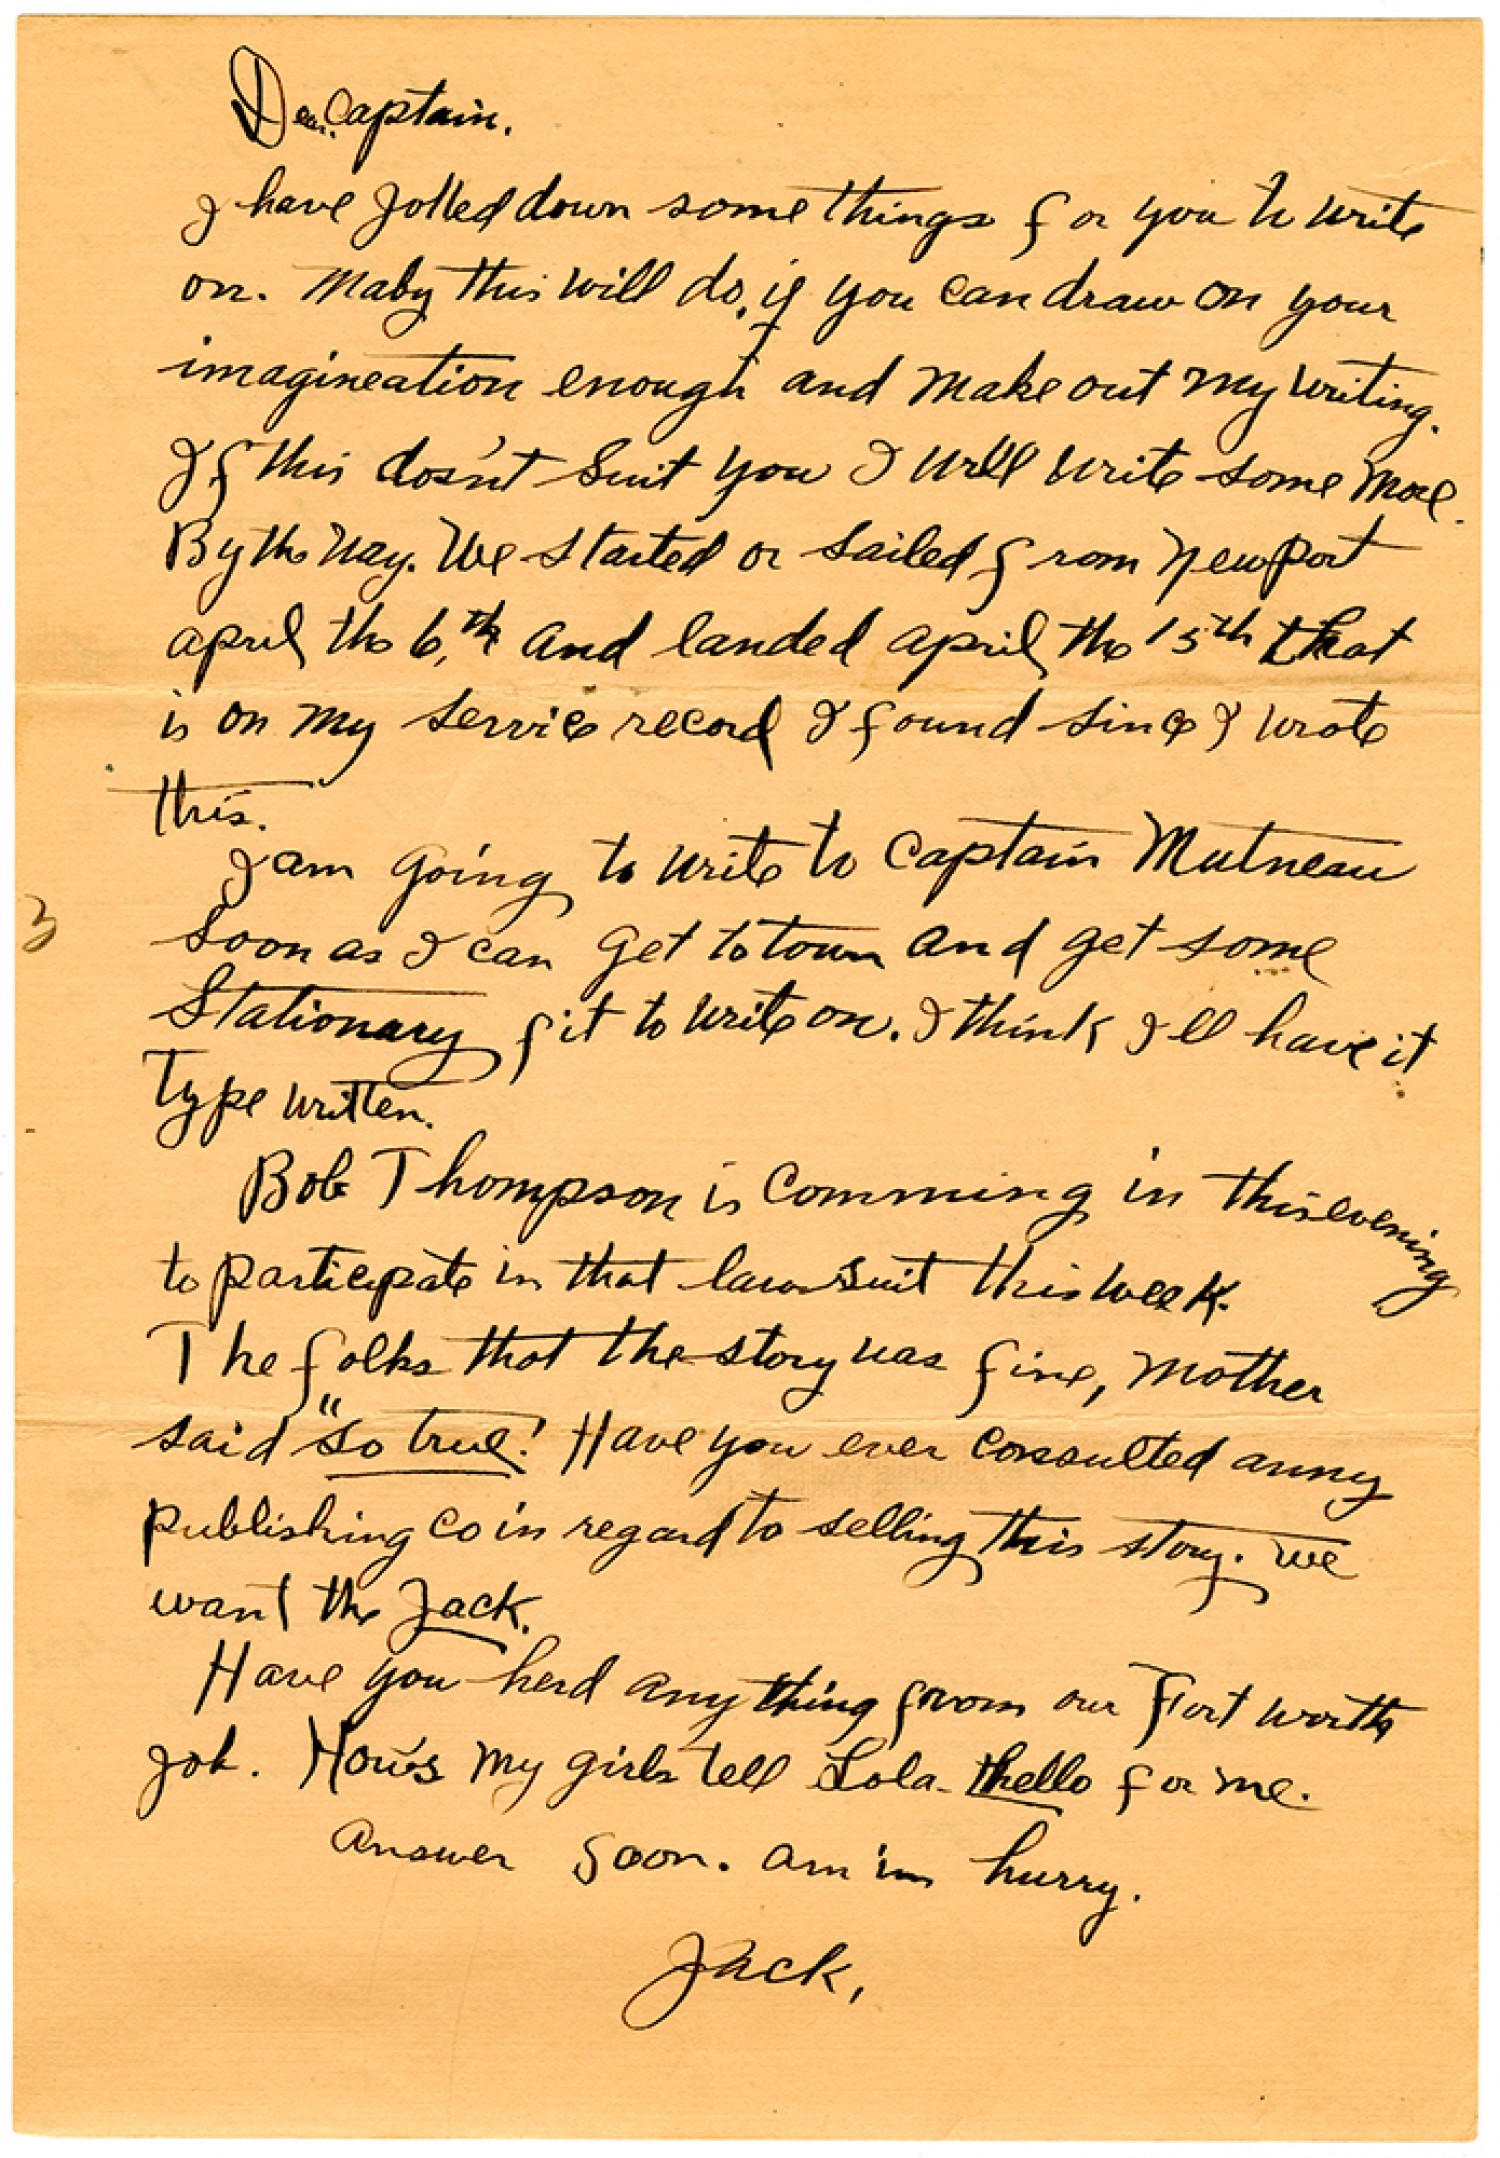 Dear Captain.
I have Jotted down some things for you to write
on. Maby this will do, if you can draw on your
imagineation enough and make out my writing.
If this dosn't suit you I will write some more.
By the way. We started or sailed from Newport
april the 6,th and landed april the 15th that
is on my service record I found since I wrote
this.
I am going to write to Captain Mutneau
soon as I can get to town and get some
Stationary fit to write on. I think I'll have it
type written.
Bob Thompson is comming in this evening
to participate in that lawsuit this week.
The folks that the story was fine, Mother
said "so true! Have you ever consulted anny
publishing co in regard to selling this story. We
want the Jack.
Have you herd any thing from our Fort worth
job. How's my girls tell Lola hello for me.
Answer soon. am in hurry.
Jack,
3